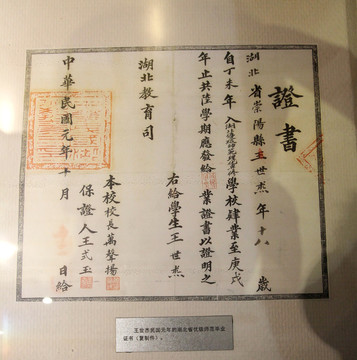 證書
湖北省崇陽縣王世杰年十八歲
自丁未年入學校肄業至庚戌
年止共陸學期應發給業證書以證明之
右給學生王世杰
湖北教育司
本校校長萬聲揚
保證人王式玉
中華民國元年十月日給
王世杰民国元年的湖北省优级师范毕业
证书（复制件）。